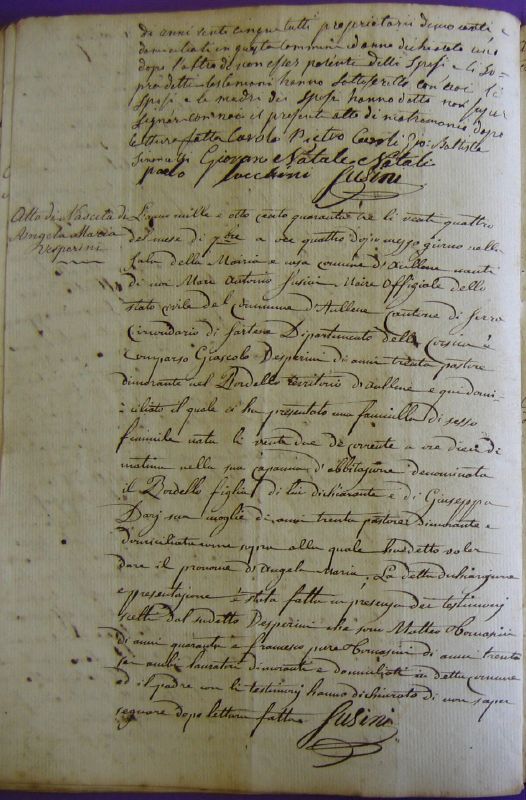 di anni venti cinque tutti proprietarii dimoranti e
domiciliati in questa commune e d'anno dichiarato
dopo l'altro di non esser parente delli Sposi e li Su-
predetti testimoni hanno sottoscritto con noi li
Sposi e le madri dei Sposi hanno detto non saper
signar con noi il presente atto di matrimonio dopo
lettura fatta Carolo Pietro Gio: Battista
Giovan Natale Natali
paolo Susini
Atto di Nascita di
Angela Maria
Vesperini
L'anno mille e otto cento quaranta tre li venti quattro
del mese di 7bre a ore quattro dopo mezzo giorno nella
Sala della Mairia e casa comune d'Aullene nanti
di noi Marc Antonio Susini Maire Officiale dello
stato civile del Commune d'Aullene cantone di Serra
Circondario di Sartene Dipartimento della Corsica è
Comparso Vesperini di anni trenta pastore
dimorante nel Bordello territorio d'Aullene e qui domi-
ciliato il quale ci ha presentato una fanciulla di sesso
feminile nata li venti due de corrente a ore dieci di
matina nella sua capanna d'abbitazione denominata
il Bordello figlia di lui dichiarante e di Giuseppa
sua moglie di anni trenta pastore dimorante e
domiciliata come sopra alla quale ha detto voler
dare il pronome d'Angela Maria. La detta dichiarazione
e presentazione è stata fatta in presenza dei testimonj
scelti dal sudetto Vesperini che sono Matteo
di anni quaranta e Francesco di anni trenta
sei ambi lavoratori dimoranti e domiciliati in detta comune
ed il padre con li testimonj hanno dichiarato di non saper
segnare dopo lettura fatta Susini